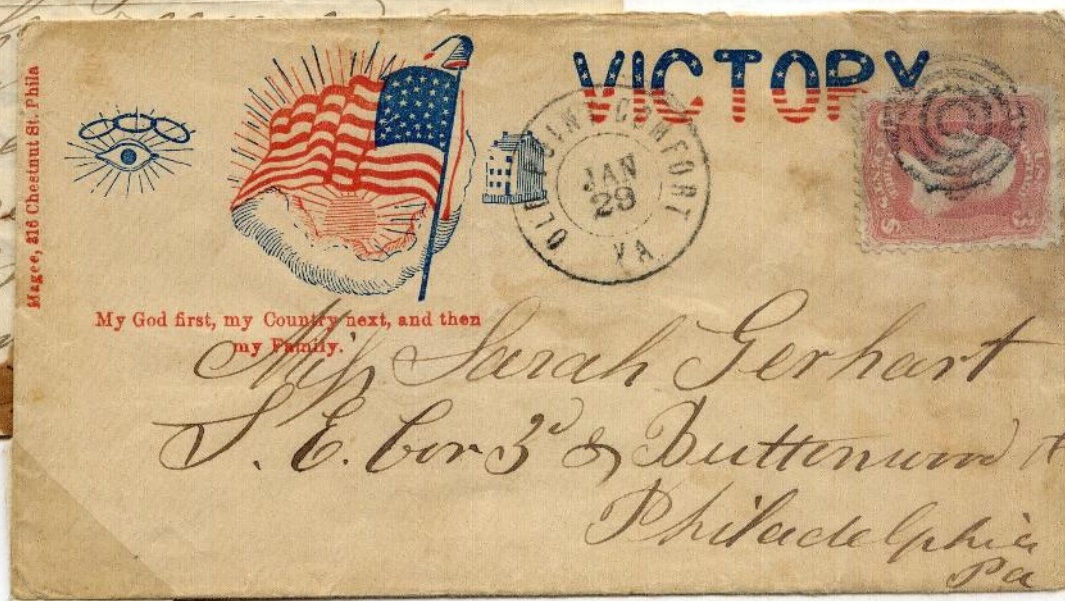 Magee, 316 Chestnut St. Phila
VICTORY
OLD POINT COMFORT
JAN
29
VA
3
My God first, my Country next, and then
my Family.
Miss Sarah Gerhart
S. E. Cor 3d & Buttonwood
Philadelphia
Pa